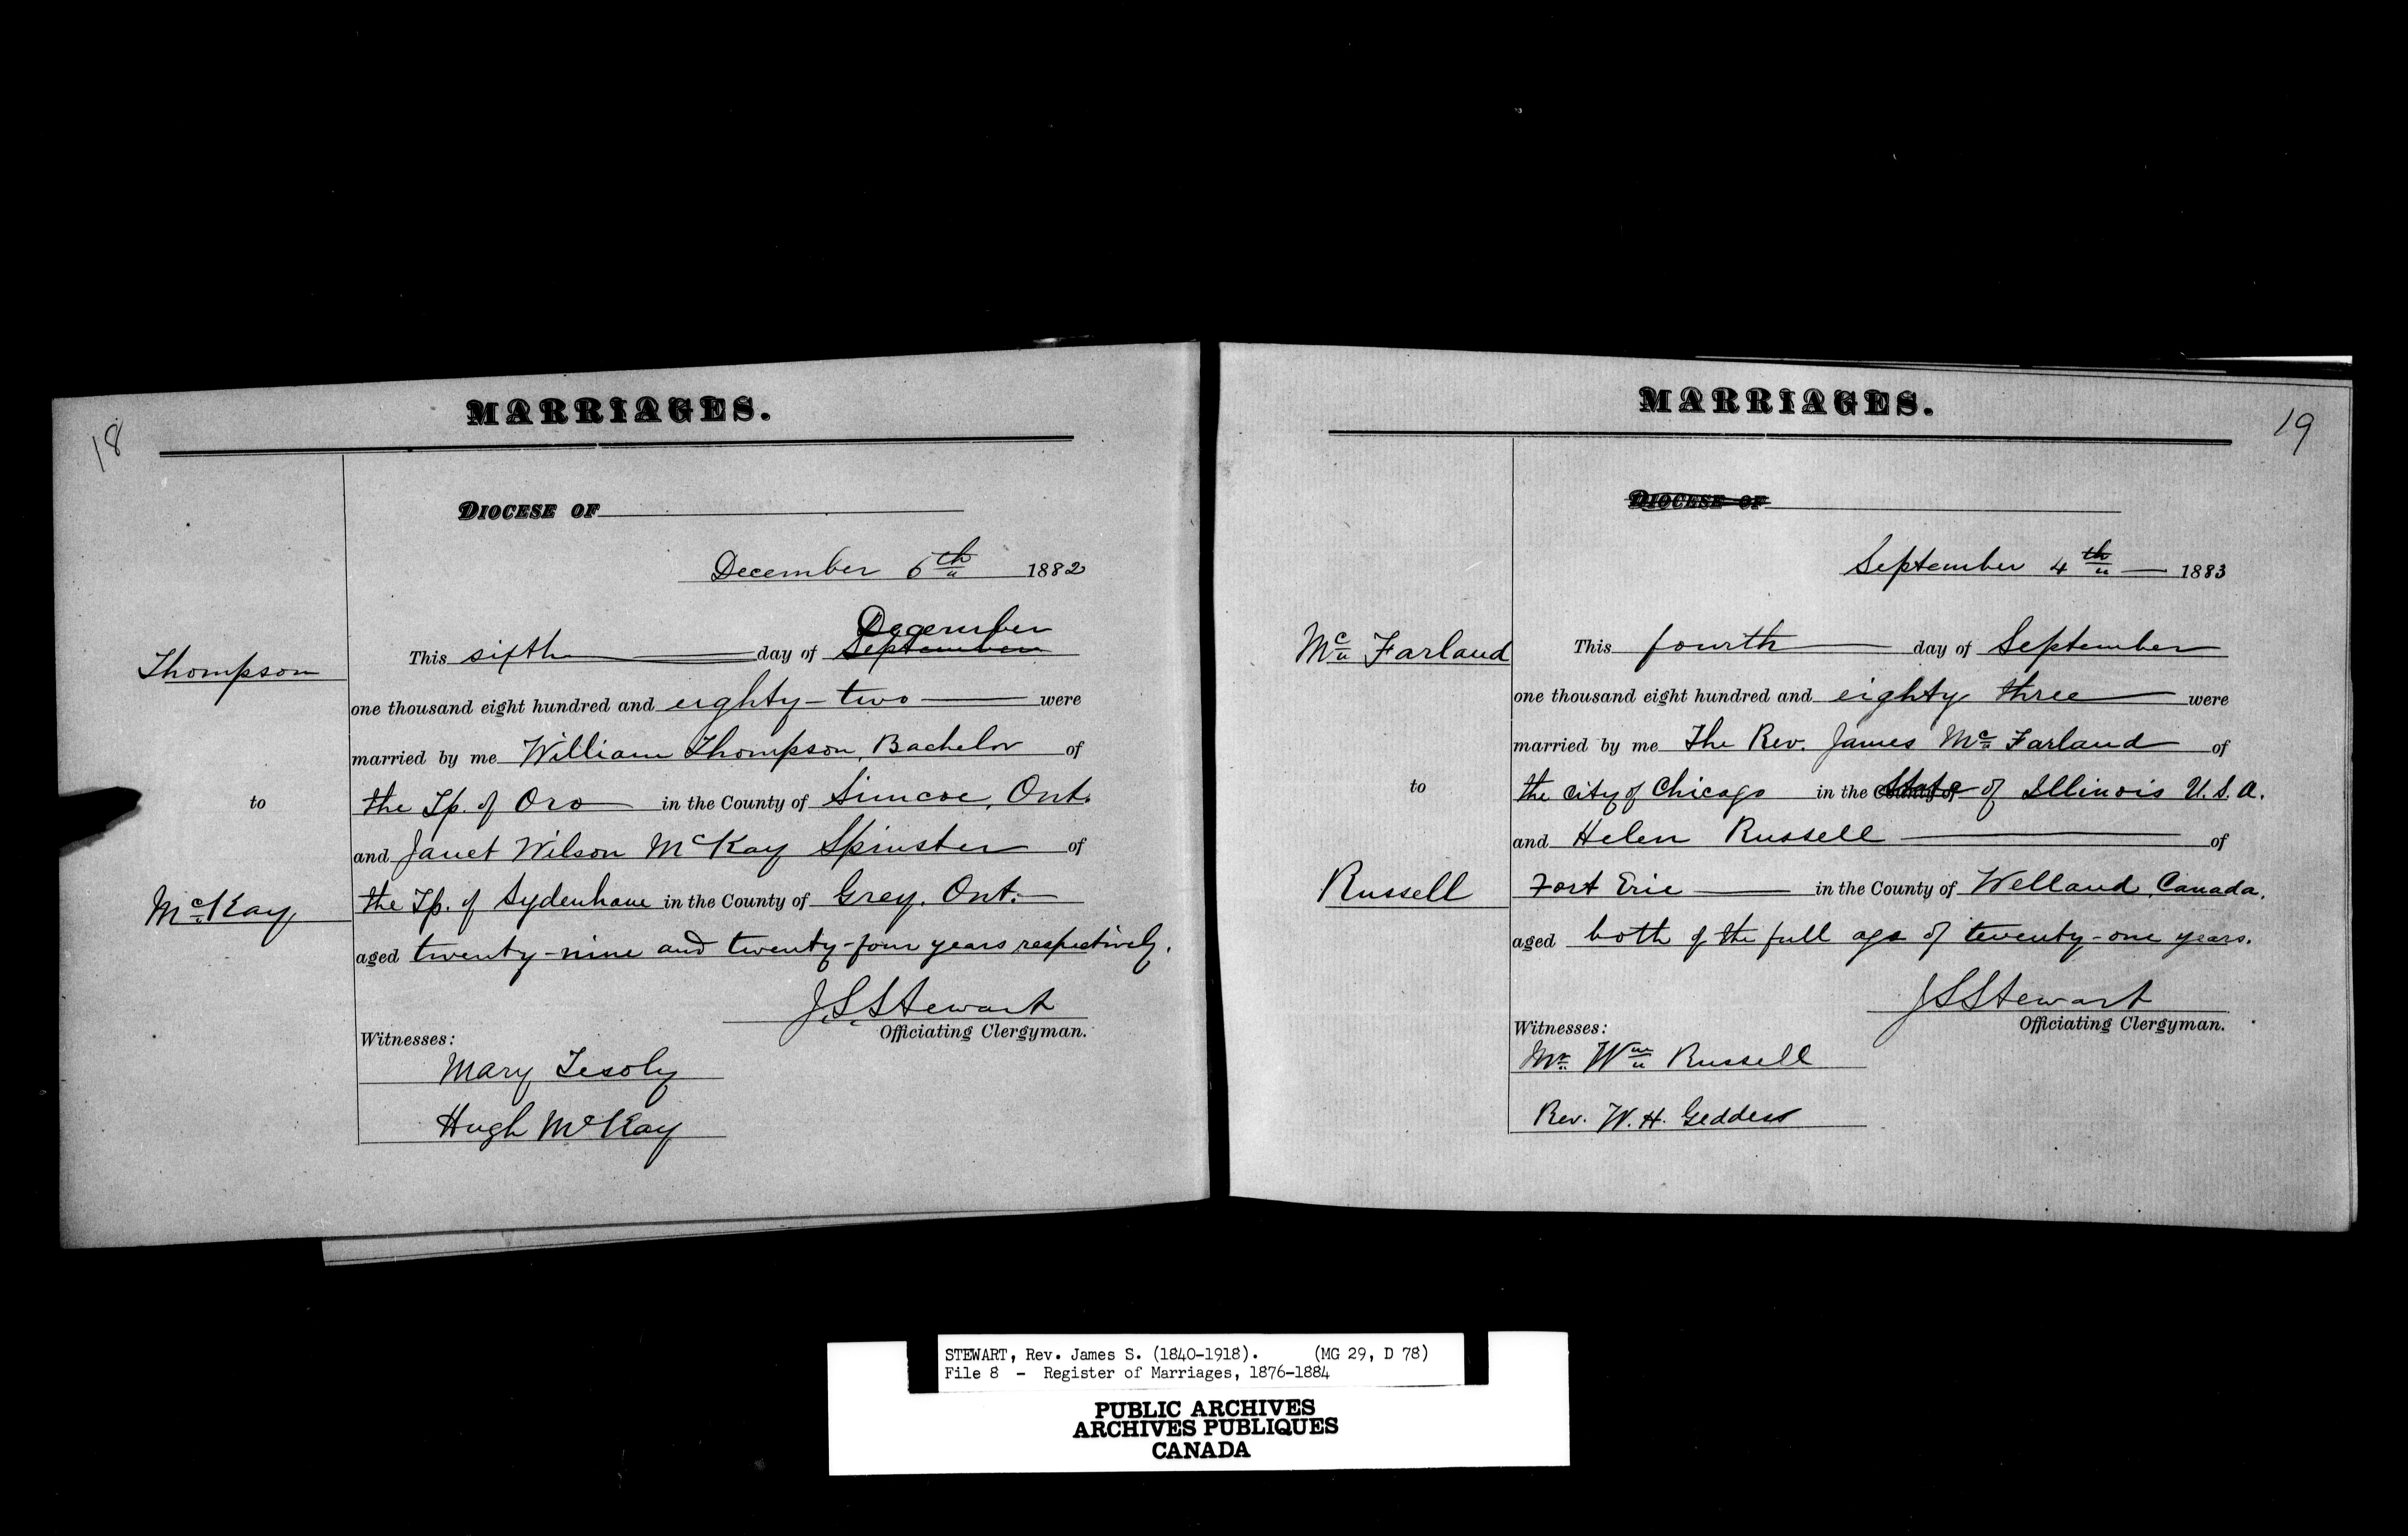 18
MARRIAGES.
DIOCESE OF
December 6th 1882
Thompson
to
McKay
December
This sixth day of September
one thousand eight hundred and eighty-two were
married by me William Thompson, Bachelor of
the Tp. of Oro in the County of Simcoe, Ont.
and Janet Wilson McKay Spinster of
the Tp. of Sydenham in the County of Grey, Ont.
aged twenty-nine and twenty-four years respectively.
J.S.Stewart
Officiating Clergyman.
Witnesses:
Mary
Hugh McKay
19
MARRIAGES.
DIOCESE OF
September 4th 1883
McFarland
to
Russell
This fourth day of September
one thousand eight hundred and eighty three were
married by me The Rev. James McFarland of
the city of Chicago in the County of State of Illinois U.S.A.
and Helen Russell of
Fort Erie in the County of Welland, Canada.
aged both of the full age of twenty-one years.
JSStewart
Officiating Clergyman.
Witnesses:
Mr. Wm Russell
Rev. W. H. Geddess
STEWART, Rev. James S. (1840-1918). (MG 29, D 78)
File 8 - Register of Marriages, 1876-1884
PUBLIC ARCHIVES
ARCHIVES PUBLIQUES
CANADA